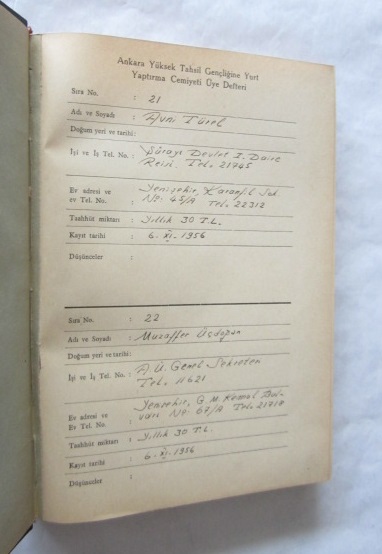 Ankara Yüksek Tahsil Gençliğine Yurt
Yaptırma Cemiyeti Üye Defteri
Sıra No. : 21
Adı ve Soyadı : Avni Türel
Doğum yeri ve tarihi:
İşi ve İş Tel. No. : Şûrayı Devlet I. Daire
Reisi. Tel. 21745
Ev adresi ve : Yenişehir, Karanfil Sok.
ev Tel. No. No: 45/A Tel. 22312
Taahhüt miktarı : Yıllık 30 T.L.
Kayıt tarihi : 6. XI. 1956
Düşünceler :
Sıra No. : 22
Adı ve Soyadı : Muzaffer Üçdoğan
Doğum yeri ve tarihi:
İşi ve İş Tel. No. : A.Ü. Genel Sekreteri
Tel. 11621
Ev adresi ve : Yenişehir, G.M. Kemal Bul-
Ev Tel. No. varı No: 67/A Tel. 21718
Taahhüt miktarı : Yıllık 30 T.L.
Kayıt tarihi : 6. XI. 1956
Düşünceler :